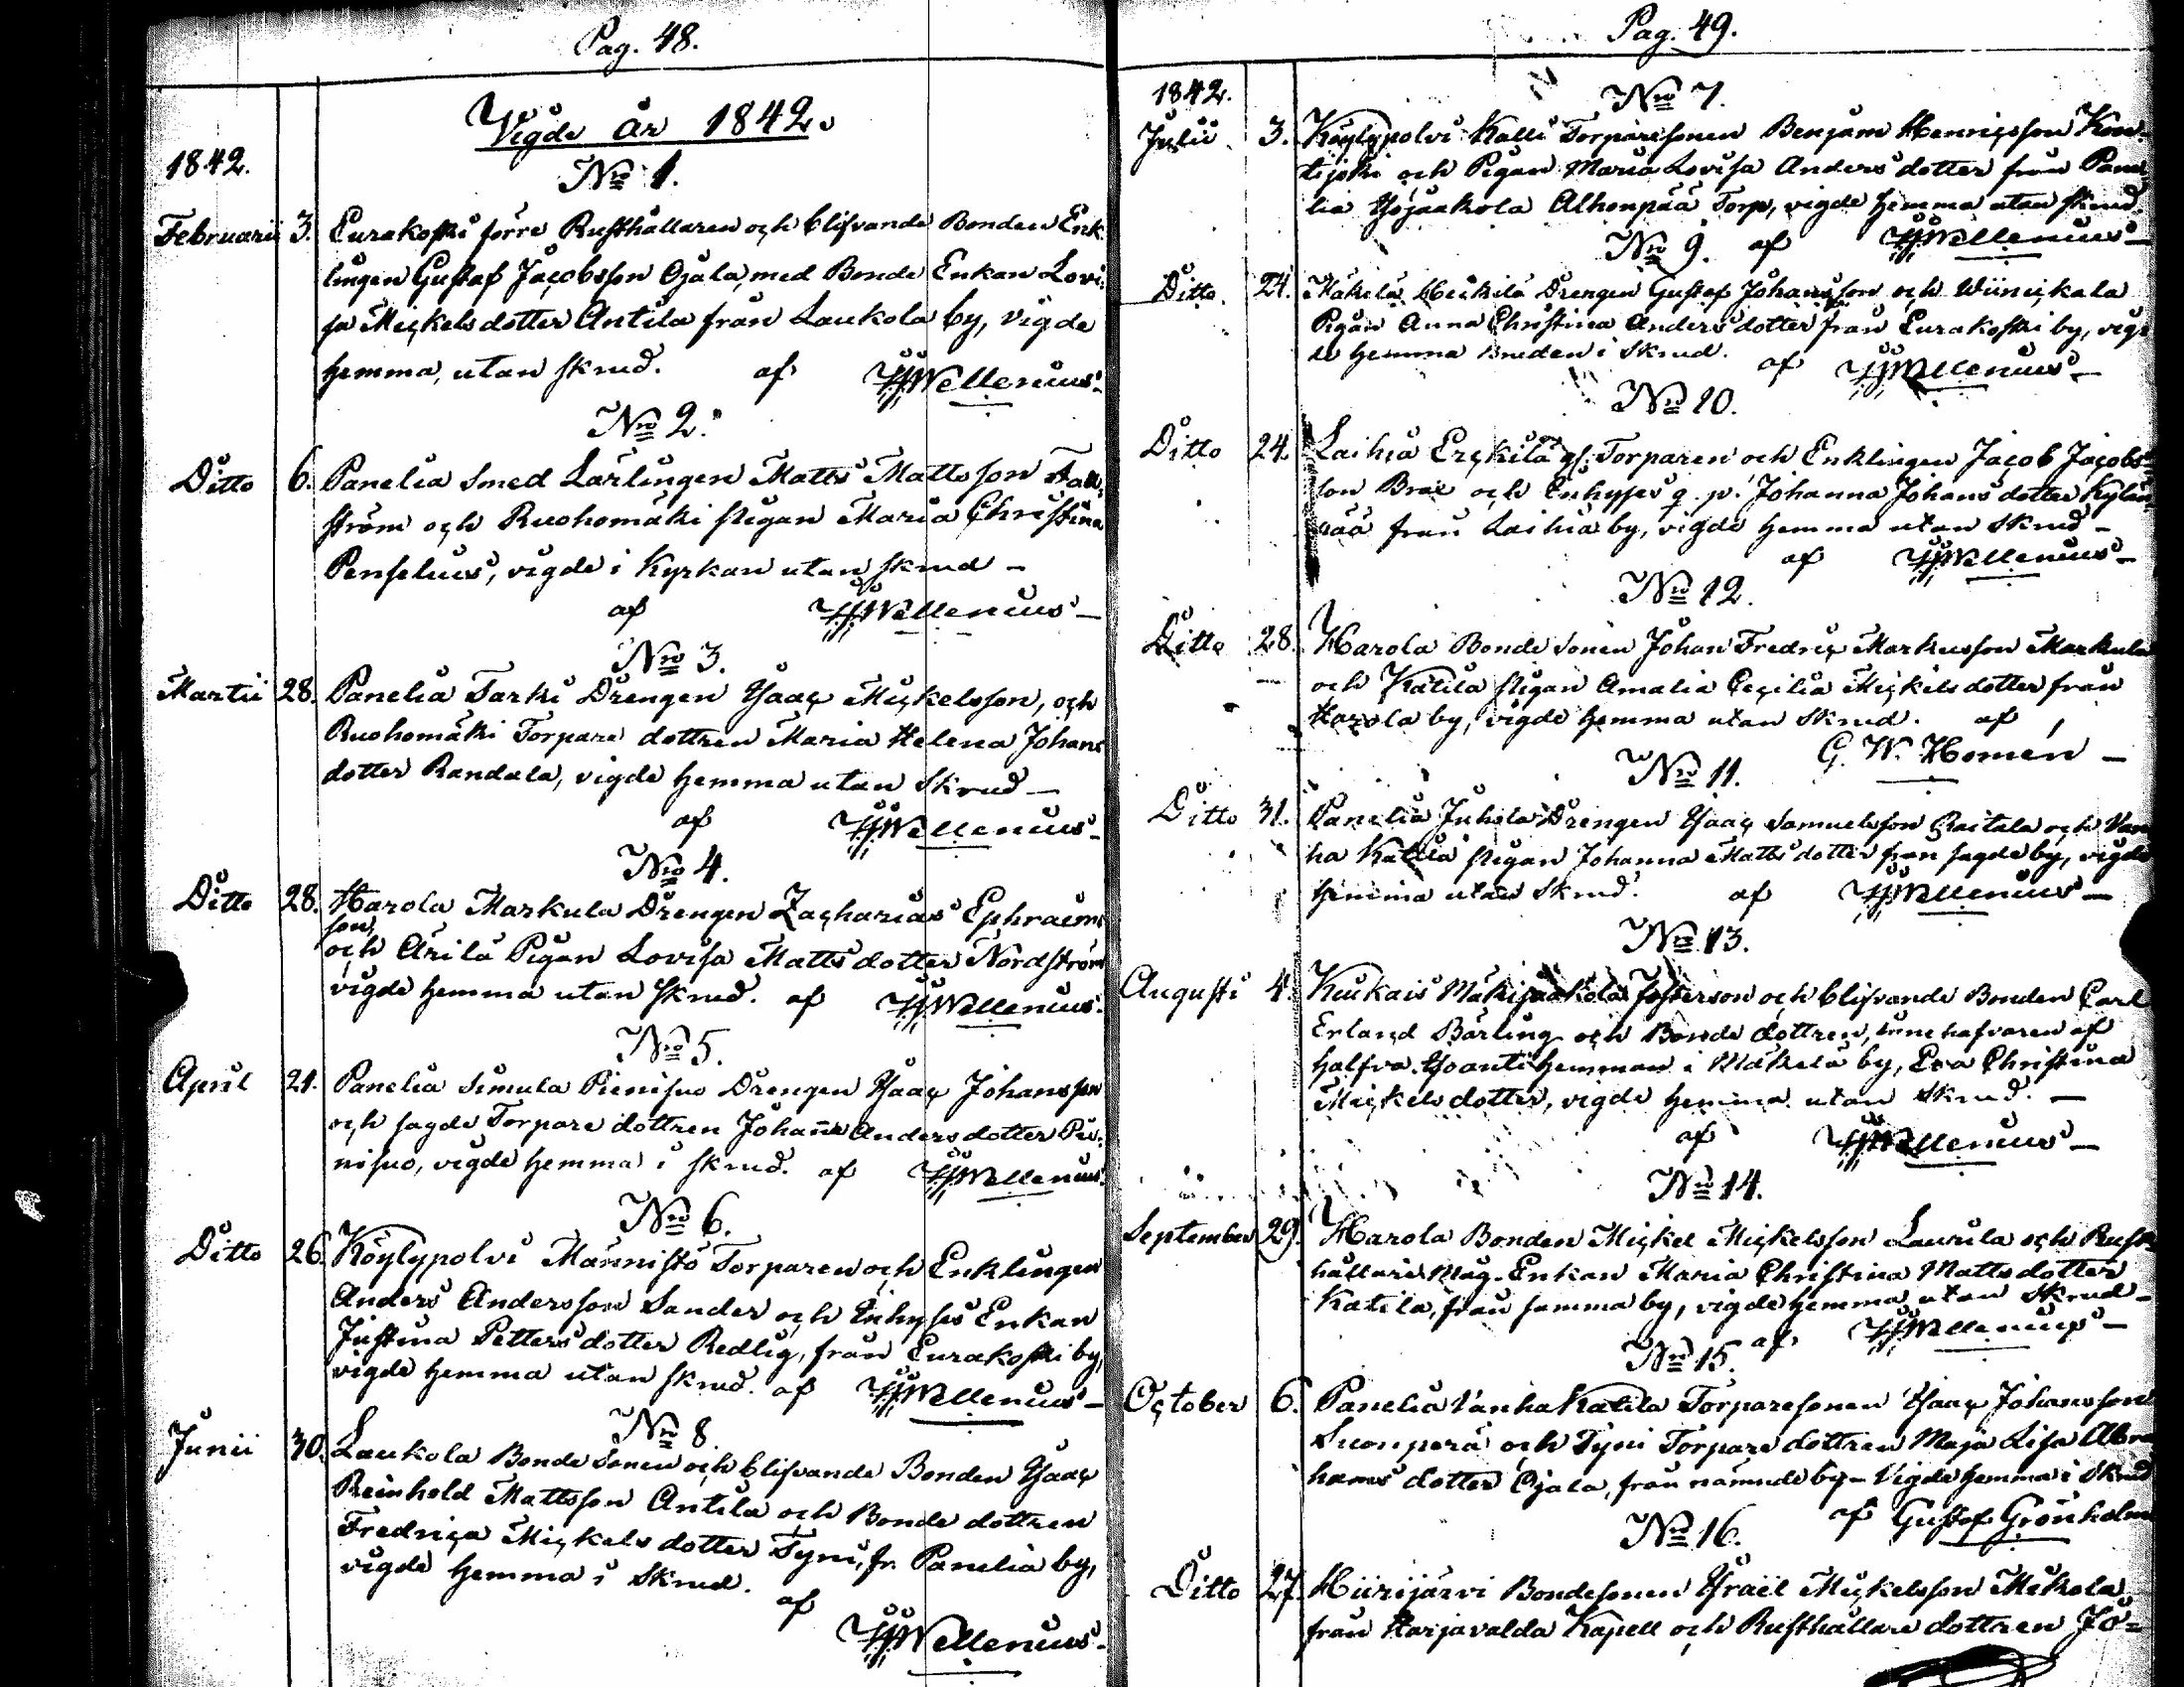 Pag. 48.
Vigde år 1842.
1842.
No 1.
Februarii 3. Eurakoski förre Rusthållaren och blifvande Bonden Enk-
lingen Gustaf Jacobsson Ojala, med Bonde Enkan Lovi-
sa Mickelsdotter Antila från Laukola by, vigde
hemma, utan skrud. af Wellenius
No 2.
Ditto 6. Panelia Smed Lärlingen Matts Mattsson
ström och Ruohomäki pigan Maria Christina
Penselius, vigde i Kyrkan utan skrud –
af Wellenius –
No 3.
Martii 28. Panelia Tarki Drengen Isaac Mickelsson, och
Ruohomäki Torpare dottren Maria Helena Johans
dotter Randala, vigde hemma utan skrud –
af Wellenius –
No 4.
Ditto 28. Harola Markula Drengen Zacharias Ephraims
son,
och Arila Pigan Lovisa Matts dotter Nordström
vigde hemma utan skrud. af Wellenius.
No 5.
April 21. Panelia Simula Pienisuo Drengen Isaac Johansson
och sagde Torpare dottren Johanna Anders dotter Pie-
nisuo, vigde hemma i skrud. af Wellenius.
No 6.
Ditto 26. Köylypolvi Männistö Torparen och Enklingen
Anders Andersson Sander och Inhyses Enkan
Justina Petters dotter Redlig, från Eurakoski by,
vigde hemma utan skrud. af Wellenius –
No 8.
Junii 30. Laukola Bonde Sonen och blifvande Bonden Isaac
Reinhold Mattsson Antila och Bonde dottren
Fredrica Mickels dotter Tyni, fr. Panelia by,
vigde hemma i Skrud.
af
Wellenius.
Pag. 49.
1842.
No 7.
Julii 3. Köylypolvi Kalli Torparesonen Benjam Henricsson Kon-
tijoki och Pigan Maria Lovisa Anders dotter från Pane-
lia Isojaakola Alhonpää Torp, vigde hemma utan skrud.
No 9. af Wellenius –
Ditto 24. Mäkelä Heikilä Drengen Gustaf Johansson och Wiinickala
Pigan Anna Christina Anders dotter från Eurakoski by, vig-
de hemma Bruden i Skrud.
af Wellenius –
No 10.
Ditto 24. Laihia Erckilä Torparen och Enklingen Jacob Jacobs-
son och Inhyses q. p. Johanna Johans dotter
från Laihia by, vigde hemma utan skrud –
af Wellenius –
No 12.
Ditto 28. Harola Bonde Sonen Johan Fredric Markusson Markula
och Katila pigan Amalia Cecilia Mickels dotter från
Harola by, vigde hemma utan Skrud. af
G. W. Homén –
No 11.
Ditto 31. Panelia Juhola Drengen Isaac Samuelsson Raitala och Van-
ha Katila pigan Johanna Matts dotter från sagde by, vigde
hemma utan Skrud. af Wellenius –
No 13.
Augusti 4. Kiukais Mäkijaakola Fosterson och blifvande Bonden Carl
Erland Bärling och Bonde dottren, innehafvaren af
halfva Isoanti Hemman i Mäkelä by, Eva Christina
Mickels dotter, vigde hemma utan Skrud. –
af Wellenius –
No 14.
September 29. Harola Bonden Mickel Mickelsson Laurila och Rust-
hållare Måg-Enkan Maria Christina Matts dotter
Katila, från samma by, vigde hemma utan Skrud –
af Wellenius –
No 15.
October 6. Panelia Vanha Katila Torparesonen Isaac Johansson
Suonperä och Tyni Torpare dottren Maja Lisa Abra
hams dotter Ojala, från nämnde by – Vigde hemma i Skrud
af Gustaf Grönholm
No 16.
Ditto 27. Hiirijärvi Bondesonen Israel Mickelsson Mikola
från Harjavalda Kapell och Rusthållare dottren Jo-